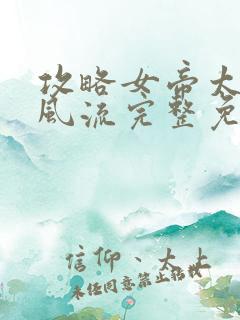 攻略女帝太
风流完整免
信仰、大上
未经同意禁止搭载